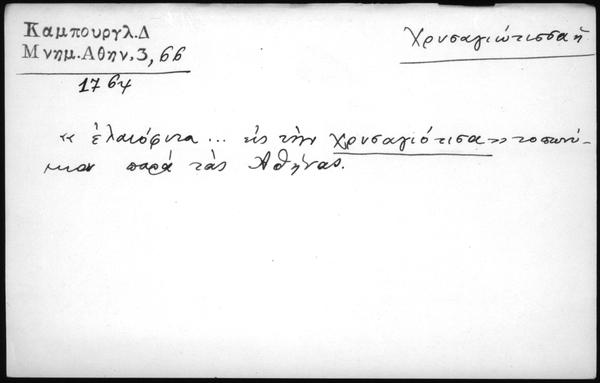 Καμπουργλ.Δ
Μνημ.Αθην.3, 66
1764
Χρυσαγιώτισσα ἡ
« ἐλαιόφυτα ... εἰς τὴν Χρυσαγιότισα » τοπωνύ-
μιον παρά τὰς Ἀθήνας.